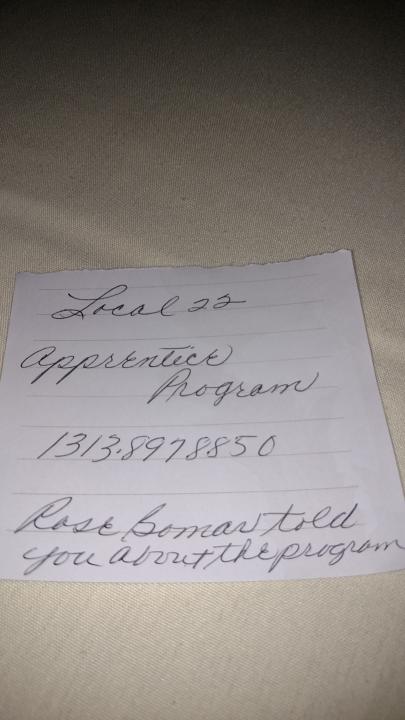 Local 22
Apprentice
Program
1313.8978850
Rose Bomar told
you about the program